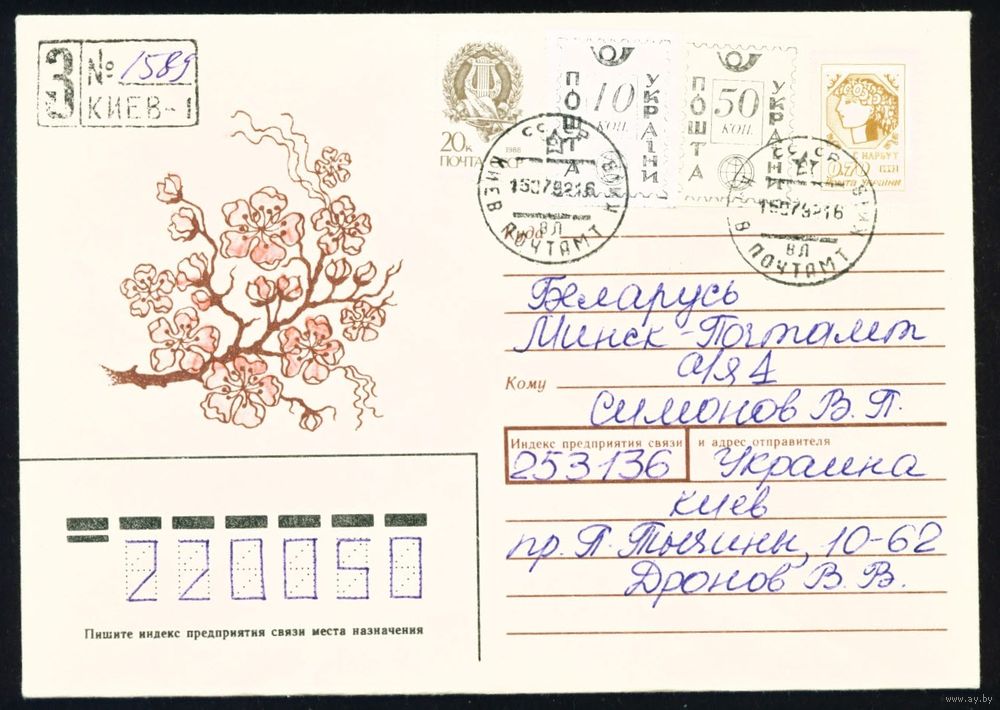 З № 1589
КИЕВ-1
20к
1988
ПОЧТА СССР
ПОШТА 10 КОП. УКРАЇНИ
ПОШТА 50 КОП. УКРАЇНИ
Г. НАРБУТ
0.70 КРБ
Пошта України
СССР
КИЕВ
15079216
ВЛ
ПОЧТАМТ
СССР
КИЇВ
15079216
ВЛ
ПОЧТАМТ
Куда
Беларусь
Минск-Почтамт
а/я 1
Кому
Симонов В.П.
Индекс предприятия связи и адрес отправителя
253136 Украина
Киев
пр. П. Тычины, 10-62
Дронов В.В.
220050
Пишите индекс предприятия связи места назначения
www.ay.by